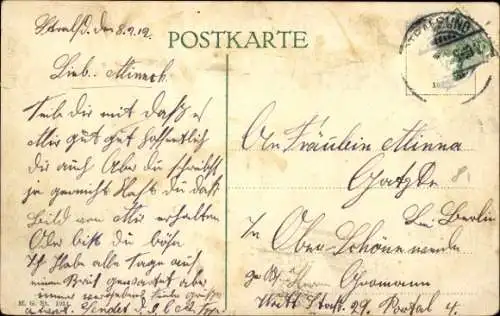 Strals. den 8.9.12.
POSTKARTE
Lieb. Minnch.
Teile dir mit daß es
Mir gut geht hoffentlich
dir auch Aber du schreibst
ja garnicht Hast du daß
Bild von Mir erhalten
Oder bist du böse
Ich Habe alle Tage auf
einen Brief gewartet aber
immer vergebens Viele grüße
sendet d.
An Fräulein Minna
Bei Berlin
In Ober-Schöneweide
Stast. 29. Portal 4.